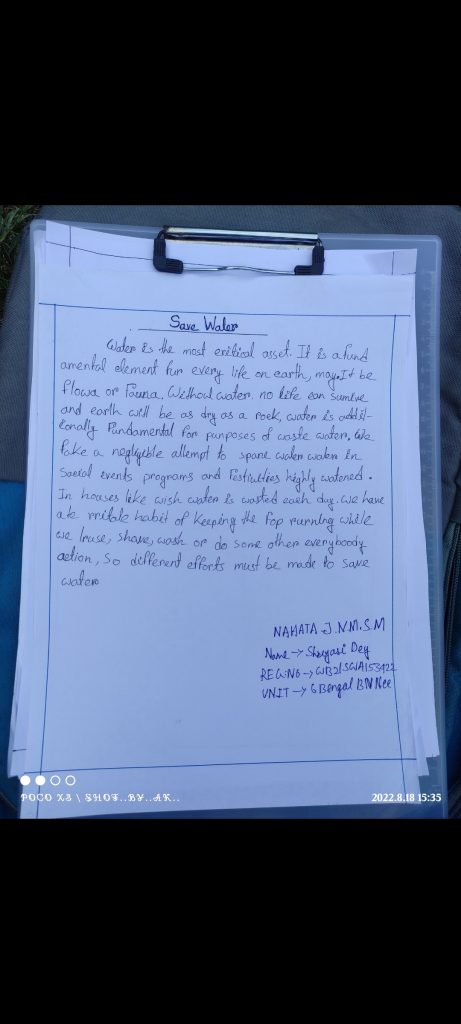 Save Water
Water is the most critical asset. It is a fund
amental element fur every life on earth, may. It be
flowa or Fauna. Without water no life can survive
and earth will be as dry as a rock, water is addit-
ionally Fundamental For purposes of waste water. We
Take a neglgible attempt to spare water water in
Social events programs and Festivities highly watered.
In houses like wish water is wasted each day. We have
a habit of Keeping the Fop running while
we shave, wash or do some other everybody
action, So different efforts must be made to save
water
NAHATA J.N.M.S.M
Name → Shreyasi Dey
REG:NO → WB21SWA153422
UNIT → 6 Bengal BN Ncc
POCO X3 \ SHOT..BY..AK..
2022.8.18 15:35